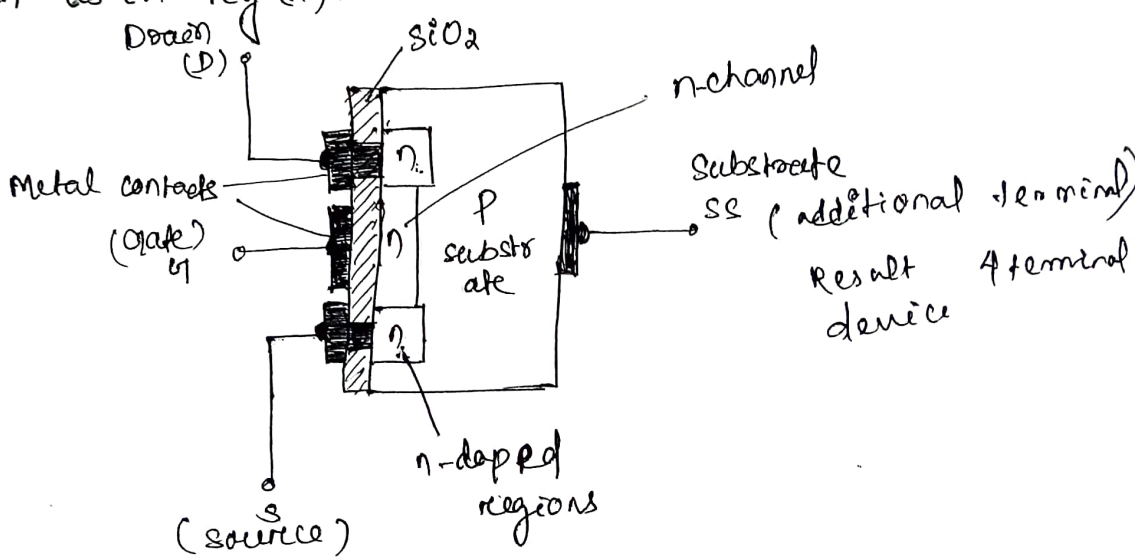 Drain
(D)
SiO2
n-channel
n
Metal contacts
(Gate)
G
n
P
substr
ate
Substrate
SS (additional terminal)
Result 4 terminal
device
n
n-doped
regions
S
(source)